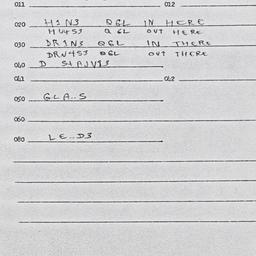 011 012
020 H1N3 QGL IN HERE
HU4S3 Q GL OUT HERE
030 DR1N3 QGL IN THERE
DRU4S3 QGL OUT THERE
040 D
041 042
050 GLA..S
060
080 LE..D3